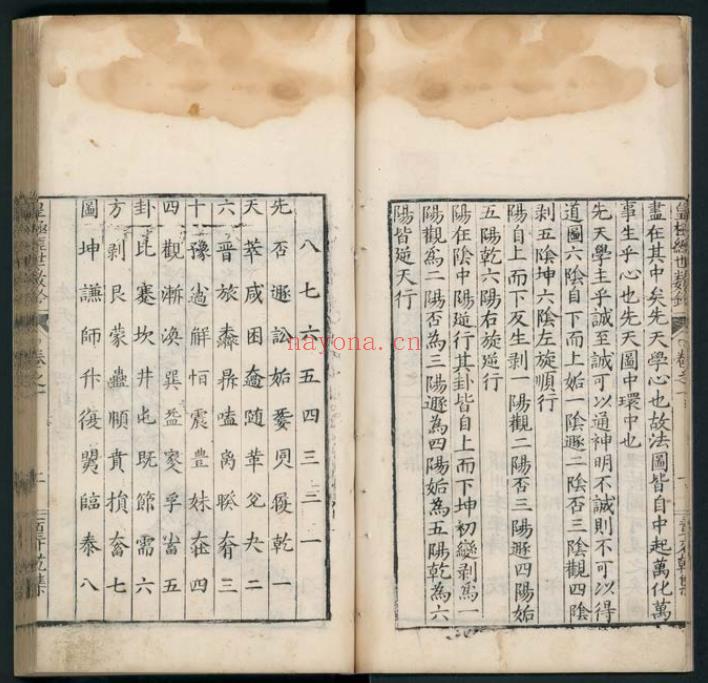 皇極經世數鈐 卷之一
盡在其中矣先天學心也故法圖皆自中起萬化萬
事生乎心也先天圖中環中也
先天學主乎誠至誠可以通神明不誠則不可以得
道圖六陰自下而上姤一陰遯二陰否三陰觀四陰
剥五陰坤六陰左旋順行
陽自上而下反生剥一陽觀二陽否三陽遯四陽姤
五陽乾六陽右旋逆行
陽在陰中陽逆行其卦皆自上而下坤初變剥為一
陽觀為二陽否為三陽遯為四陽姤為五陽乾為六
陽皆逆天行
八七六五四三三一
先否遯訟姤履乾一
天萃咸困隨革兌夬二
六晉旅鼎嗑离睽三
十豫解恒震豊妹四
四觀漸渙巽益孚五
卦比蹇坎井屯既節需六
方剥艮蒙蠱頤賁損七
圖坤謙師升復臨泰八
皇極經世數鈐 卷之一
nayona.cn